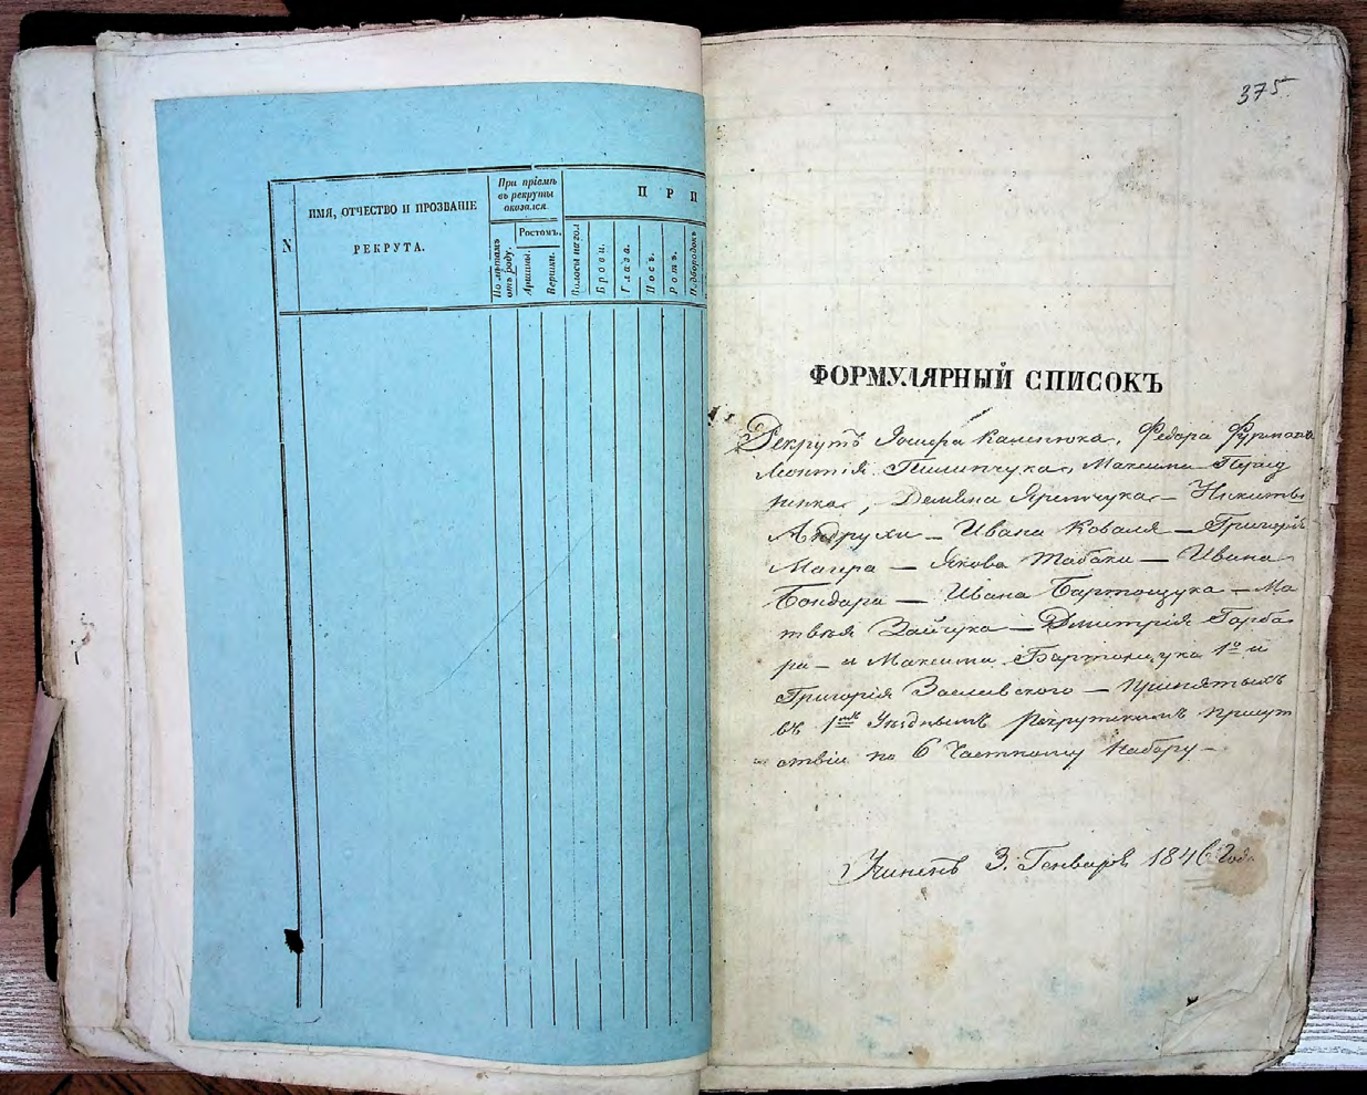 N
ИМЯ, ОТЧЕСТВО И ПРОЗВАНІЕ
РЕКРУТА.
При пріемѣ
въ рекруты
оказался.
По лѣтамъ
отъ роду.
Ростомъ.
Аршины.
Вершки.
П Р И
Волосы на гол
Брови.
Глаза.
Носъ.
Ротъ.
Подбородокъ
375
ФОРМУЛЯРНЫЙ СПИСОКЪ
Рекрутъ Іосифа Каленюка, Федора Фурмана
Леонтія Пилипчука, Максима
Демяна Яремчука – Никиты
Андрухи – Ивана Коваля – Григорія
Магера – Якова Табаки – Ивана
Бондара – Ивана Бартощука – Ма
твѣя Зайчука – Дмитрія Гарба
ра – и Максима Бартощука 1го и
Григорія Заславского – принятыхъ
въ 1мъ Уѣздномъ Рекрутскомъ присут
ствіи по 6 Частному набору –
3. Генваря 1846 года